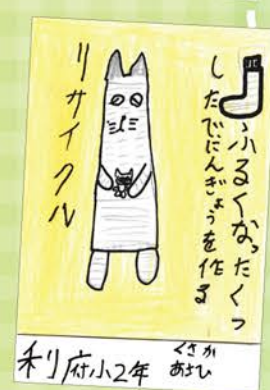 ふるくなったくつ
したでにんぎょうを作る
リサイクル
利府小2年
くさか
あさひ